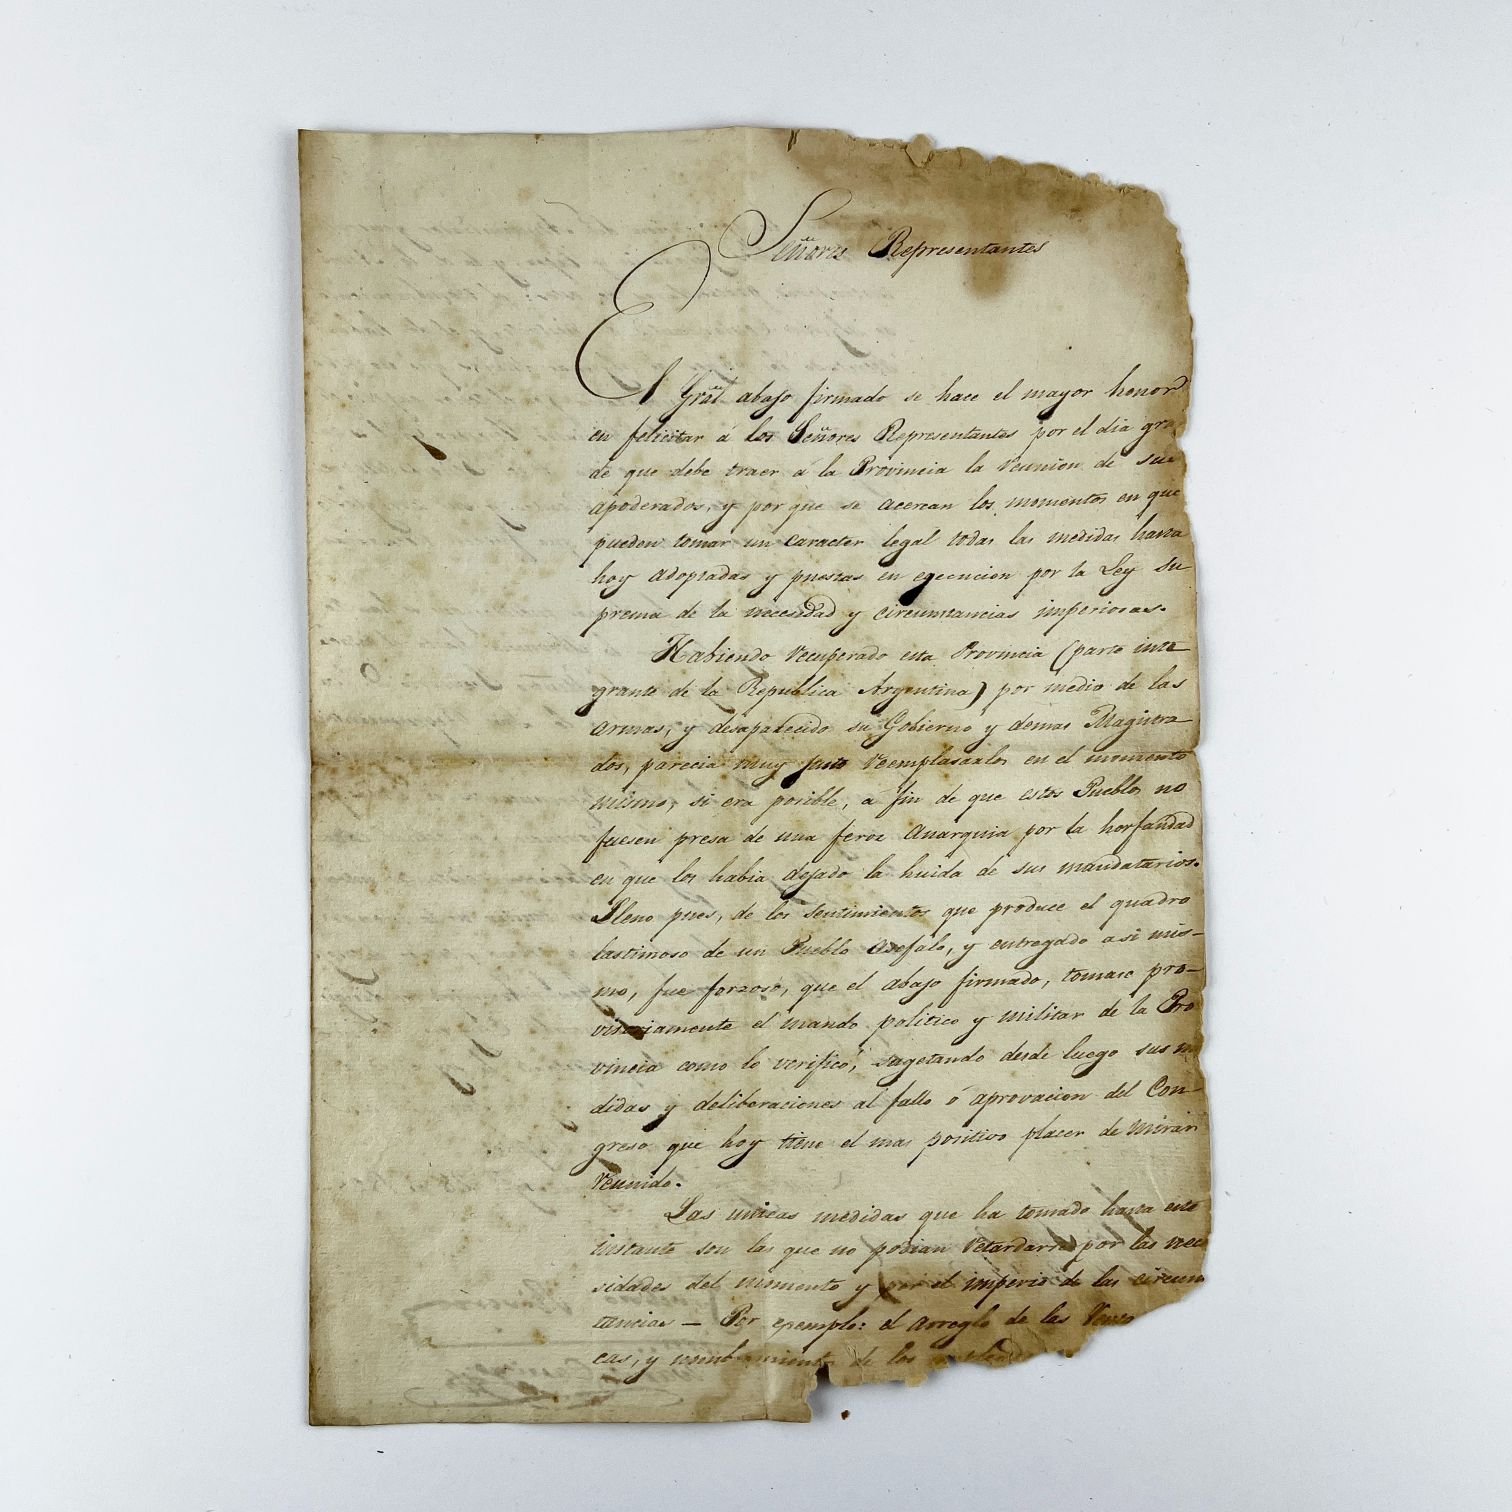 Señores Representantes
El Gral abajo firmado se hace el mayor honor
en felicitar á los Señores Representantes por el dia gra
de que debe traer á la Provincia la reunion de sus
apoderados, y por que se acercan los momentos en que
pueden tomar un caracter legal todas las medidas hasta
hoy adoptadas y puestas en egecucion por la Ley Su
prema de la necesidad y circunstancias imperiosas.
Habiendo recuperado esta Provincia (parte inte
grante de la Republica Argentina) por medio de las
armas, y desaparecido su Gobierno y demas Magistra
dos, parecia muy justo reemplasarlos en el momento
mismo, si era posible, á fin de que estos Pueblos no
fuesen presa de una feroz anarquia por la horfandad
en que los habia dejado la huida de sus mandatarios.
Lleno pues, de los sentimientos que produce el quadro
lastimoso de un Pueblo asefalo, y entregado asi mis-
mo, fue forzoso, que el abajo firmado, tomase pro-
visoriamente el mando politico y militar de la Pro
vincia como lo verificó, sugetando desde luego sus m
didas y deliberaciones al fallo ó aprovacion del Con-
greso que hoy tiene el mas positivo placer de mirar
reunido.
Las unicas medidas que ha tomado hasta este
instante son las que no podian retardarse por las nece
sidades del momento y por el imperio de las circuns
tancias — Por egemplo: el arreglo de las Rent
cas, y nombramiento de los